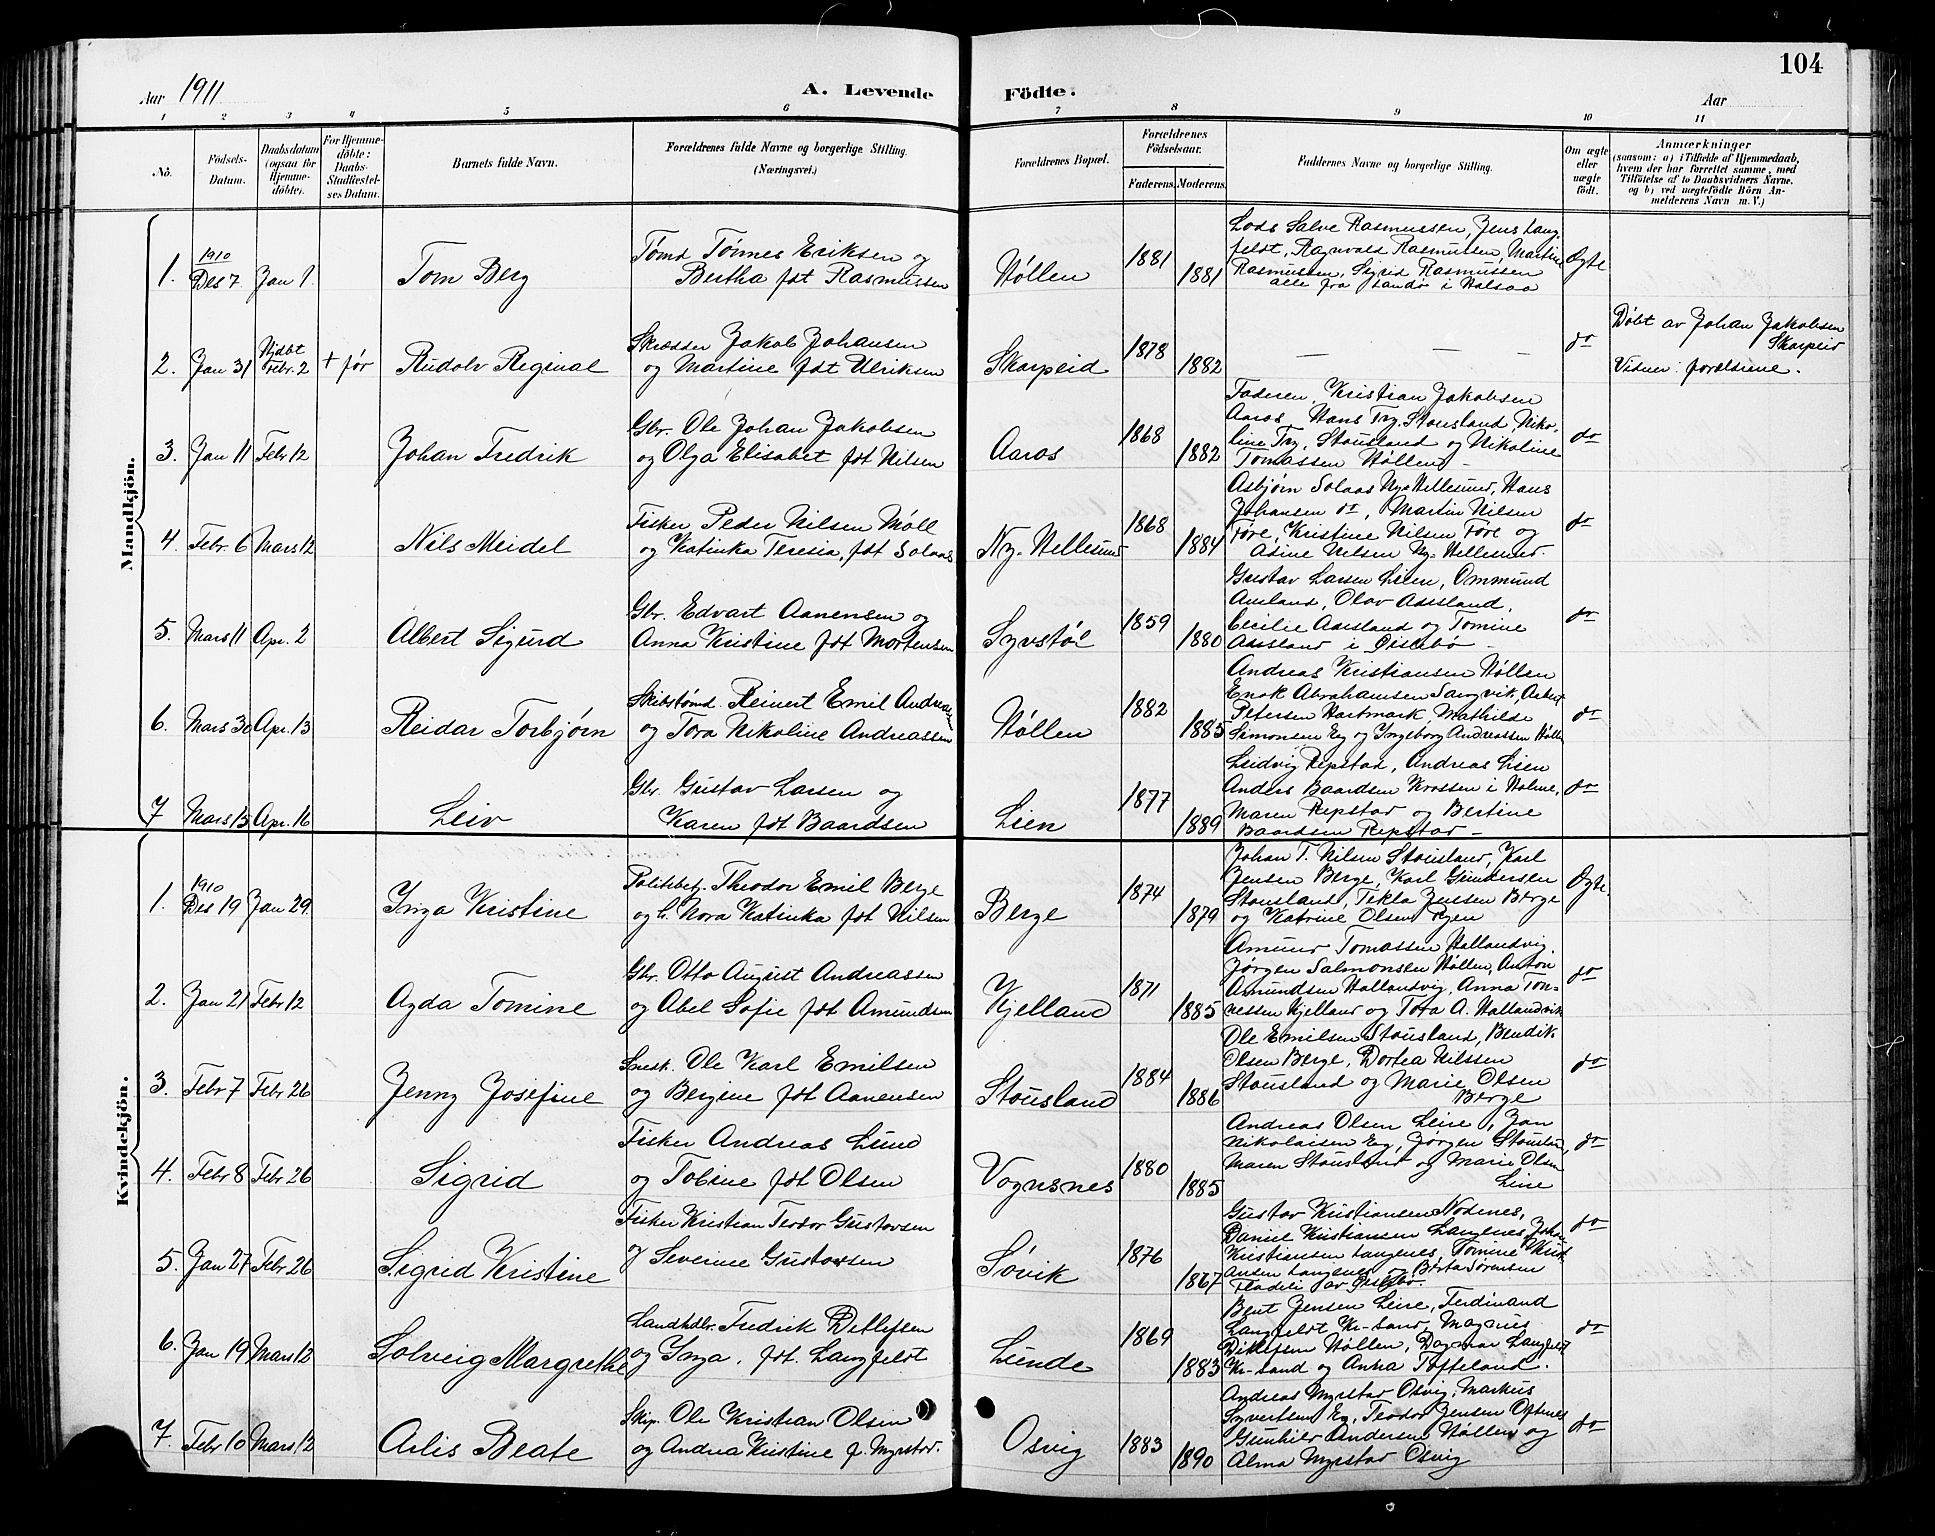 104
Aar 1911
A. Levende Födte.
Aar
1 2 3 4 5 6 7 8 9 10 11
No.
Födsels-Datum.
Daabsdatum (ogsaa for Hjemme-döbte).
For Hjemme-döbte: Daabs-Stadfæstel-ses Datum.
Barnets fulde Navn.
Forældrenes fulde Navne og borgerlige Stilling. (Næringsvei.)
Forældrenes Bopæl.
Forældrenes Födselsaar.
Faderens. Moderens.
Faddernes Navne og borgerlige Stilling.
Om ægte eller uægte födt.
Anmærkninger
(saasom: a) i Tilfælde af Hjemmedaab,
hvem der har forrettet samme, med
Tilföielse af to Daabsvidners Navne.
og b) ved uægtefödte Börn An-
melderens Navn m. V.)
Mandkjön.
1. 1910 Des 7 Jan 1. Tom Berg
Tømd Tønnes Eriksen og
Bertha fdt Rasmussen
Høllen 1881 1881
Lods Salve Rasmussen, Jens Lang-
feldt, Ragnvald Rasmussen, Martine
Rasmussen, Sigrid Rasmussen
alle fra Landø i Halsaa
Ægte
2. Jan 31 Hjdbt Febr. 2 + før Rudolv Reginal
Skrædder Jakob Johansen
og Martine fdt Ulriksen
Skarpeid 1878 1882
— — —
do
Døbt av Johan Jakobsen
Skarpeid
Vidner: forældrene.
3. Jan 11 Febr 12 Johan Fredrik
Gbr. Ole Johan Jakobsen
og Olga Elisabet fdt Nilsen
Aaros 1868 1882
Faderen, Kristian Jakobsen
Aaros, Hans Trg. Stousland, Niko-
line Trg. Stousland og Nikoline
Tomassen Høllen –
do
4. Febr. 6 Mars 12 Nils Meidel
Fisker Peder Nilsen Møll
og Katinka Teresia, fdt Solaas
Ny-Hellesund 1868 1884
Asbjørn Solaas Ny-Hellesund, Hans
Johansen do, Martin Nilsen
Føre, Kristine Nilsen Føre og
Asine Nilsen Ny-Hellesund.
do
5. Mars 11 Apr. 2 Albert Sigurd
Gbr. Edvart Aanensen og
Anna Kristine fdt Mortensen
Syvstøl 1859 1880
Gustav Larsen Lien, Ommund
Ausland, Olav Aasland,
Cecilie Aasland og Tomine
Aasland i Øislebø –
do
6. Mars 30 Apr. 13 Reidar Torbjørn
Skibstømd. Reinert Emil Andreassen
og Tora Nikoline Andreassen
Høllen 1882 1885
Andreas Kristiansen Høllen
Enok Abrahamsen Sangvik, Asbert
Petersen Hartmark, Mathilde
Simonsen Eg og Ingeborg Andreassen Høllen
do
7 Mars 13 Apr. 16 Leiv
Gbr. Gustav Larsen og
Karen fdt Baardsen
Lien 1877 1889
Leidvig Repstad, Andreas Lien
Anders Baardsen Krossen i Holme,
Maren Repstad og Bertine
Baardsen Repstad –
do
Kvindekjön.
1. 1910 Des 19 Jan 29. Inga Kristine
Politibetj. Theodor Emil Berge
og h. Nora Katinka fdt Nilsen
Berge 1874 1879
Johan T. Nilsen Stousland, Karl
Jensen Berge, Karl Gundersen
Stousland, Tekla Jensen Berge
og Katrine Olsen Ryen
Ægte
2. Jan 21 Febr 12 Agda Tomine
Gbr. Otto August Andreassen
og Abel Sofie fdt Amundsen
Kjelland 1871 1885
Amund Tomassen Hallandvig.
Jørgen Salmonsen Høllen, Anton
Amundsen Hallandvig, Anna Tøn-
nessen Kjelland og Tora A. Hallandvik
do
3. Febr 7 Febr 26 Jenny Josefine
Snedk. Ole Karl Emilsen
og Bergine fdt Aanensen
Stousland 1884 1886
Ole Emilsen Stousland, Bendik
Olsen Berge, Dortea Nilssen
Stousland og Marie Olsen
Berge
do
4. Febr 8 Febr 26 Sigrid
Fisker Andreas Lund
og Tobine fdt Olsen
Vognsnes 1880 1885
Andreas Olsen Leire, Jan
Nikolaisen Eg, Jørgen Stousland,
Maren Stousland og Marie Olsen
Leire
do
5. Jan 27 Febr 26 Sigrid Kristine
Fisker Kristian Teodor Gustavsen
og Severine Gustavsen
Søvik 1876 1867
Gustav Kristiansen Nodenes,
Daniel Kristiansen Langenes, Johan
Kristiansen Langenes, Tomine Knud-
ansen Langenes og Berta Sørensen
Fladeli av Øislebø.
do
6. Jan 19 Mars 12 Solveig Margrethe
Landhdlr. Fredrik Detlefsen
og Inga, fdt. Langfeldt
Lunde 1869 1883
Bent Jensen Leire, Ferdinand
Langfeldt Kr-sand, Magnus
Ditlefsen Høllen, Dagmar Langfeldt
Kr-sand og Anna Tofteland.
do
7. Febr 10 Mars 12 Arlis Beate
Skip. Ole Kristian Olsen
og Andrea Kristine f. Myrstad.
Osvig 1883 1890
Andreas Myrstad Osvig, Markus
Syvertsen Eg, Teodor Jensen Oftenes
Gunhild Andersen Høllen og
Alma Myrstad Osvig
do